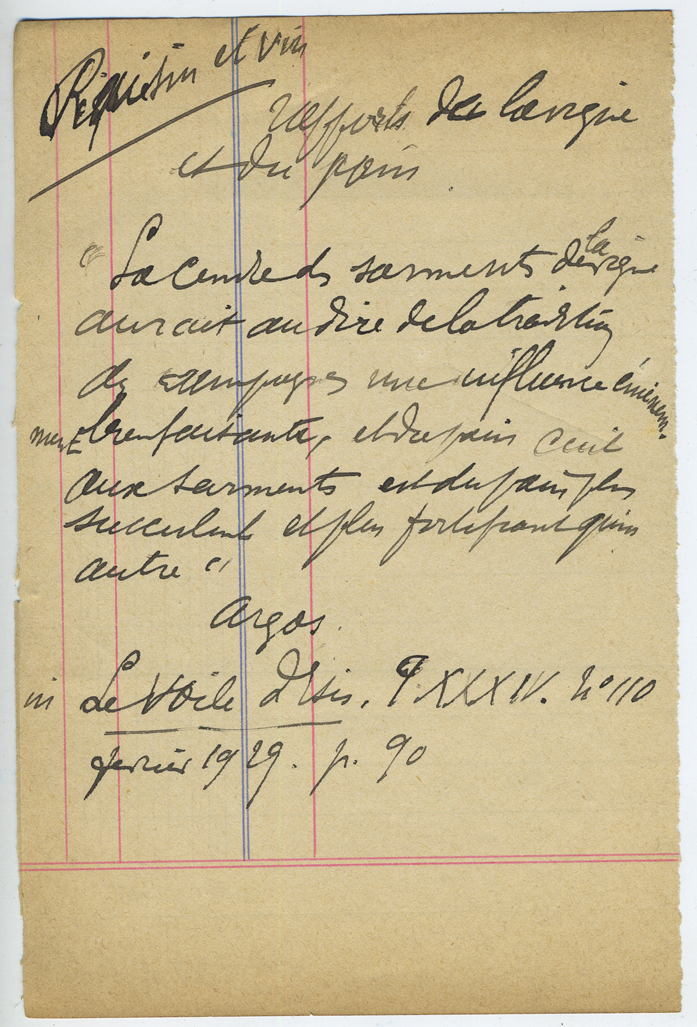 et vin
rapports de la vigne
et du pain.
"La cendre des sarments de la vigne
aurait au dire de la tradition
des campagnes une influence éminem-
ment bienfaisante, et du pain cuit
aux sarments est du pain plus
succulent et plus fortifiant qu'un
autre"
Argos.
in Le Voile d'Isis. T XXXIV. N° 110
février 1929. p. 90